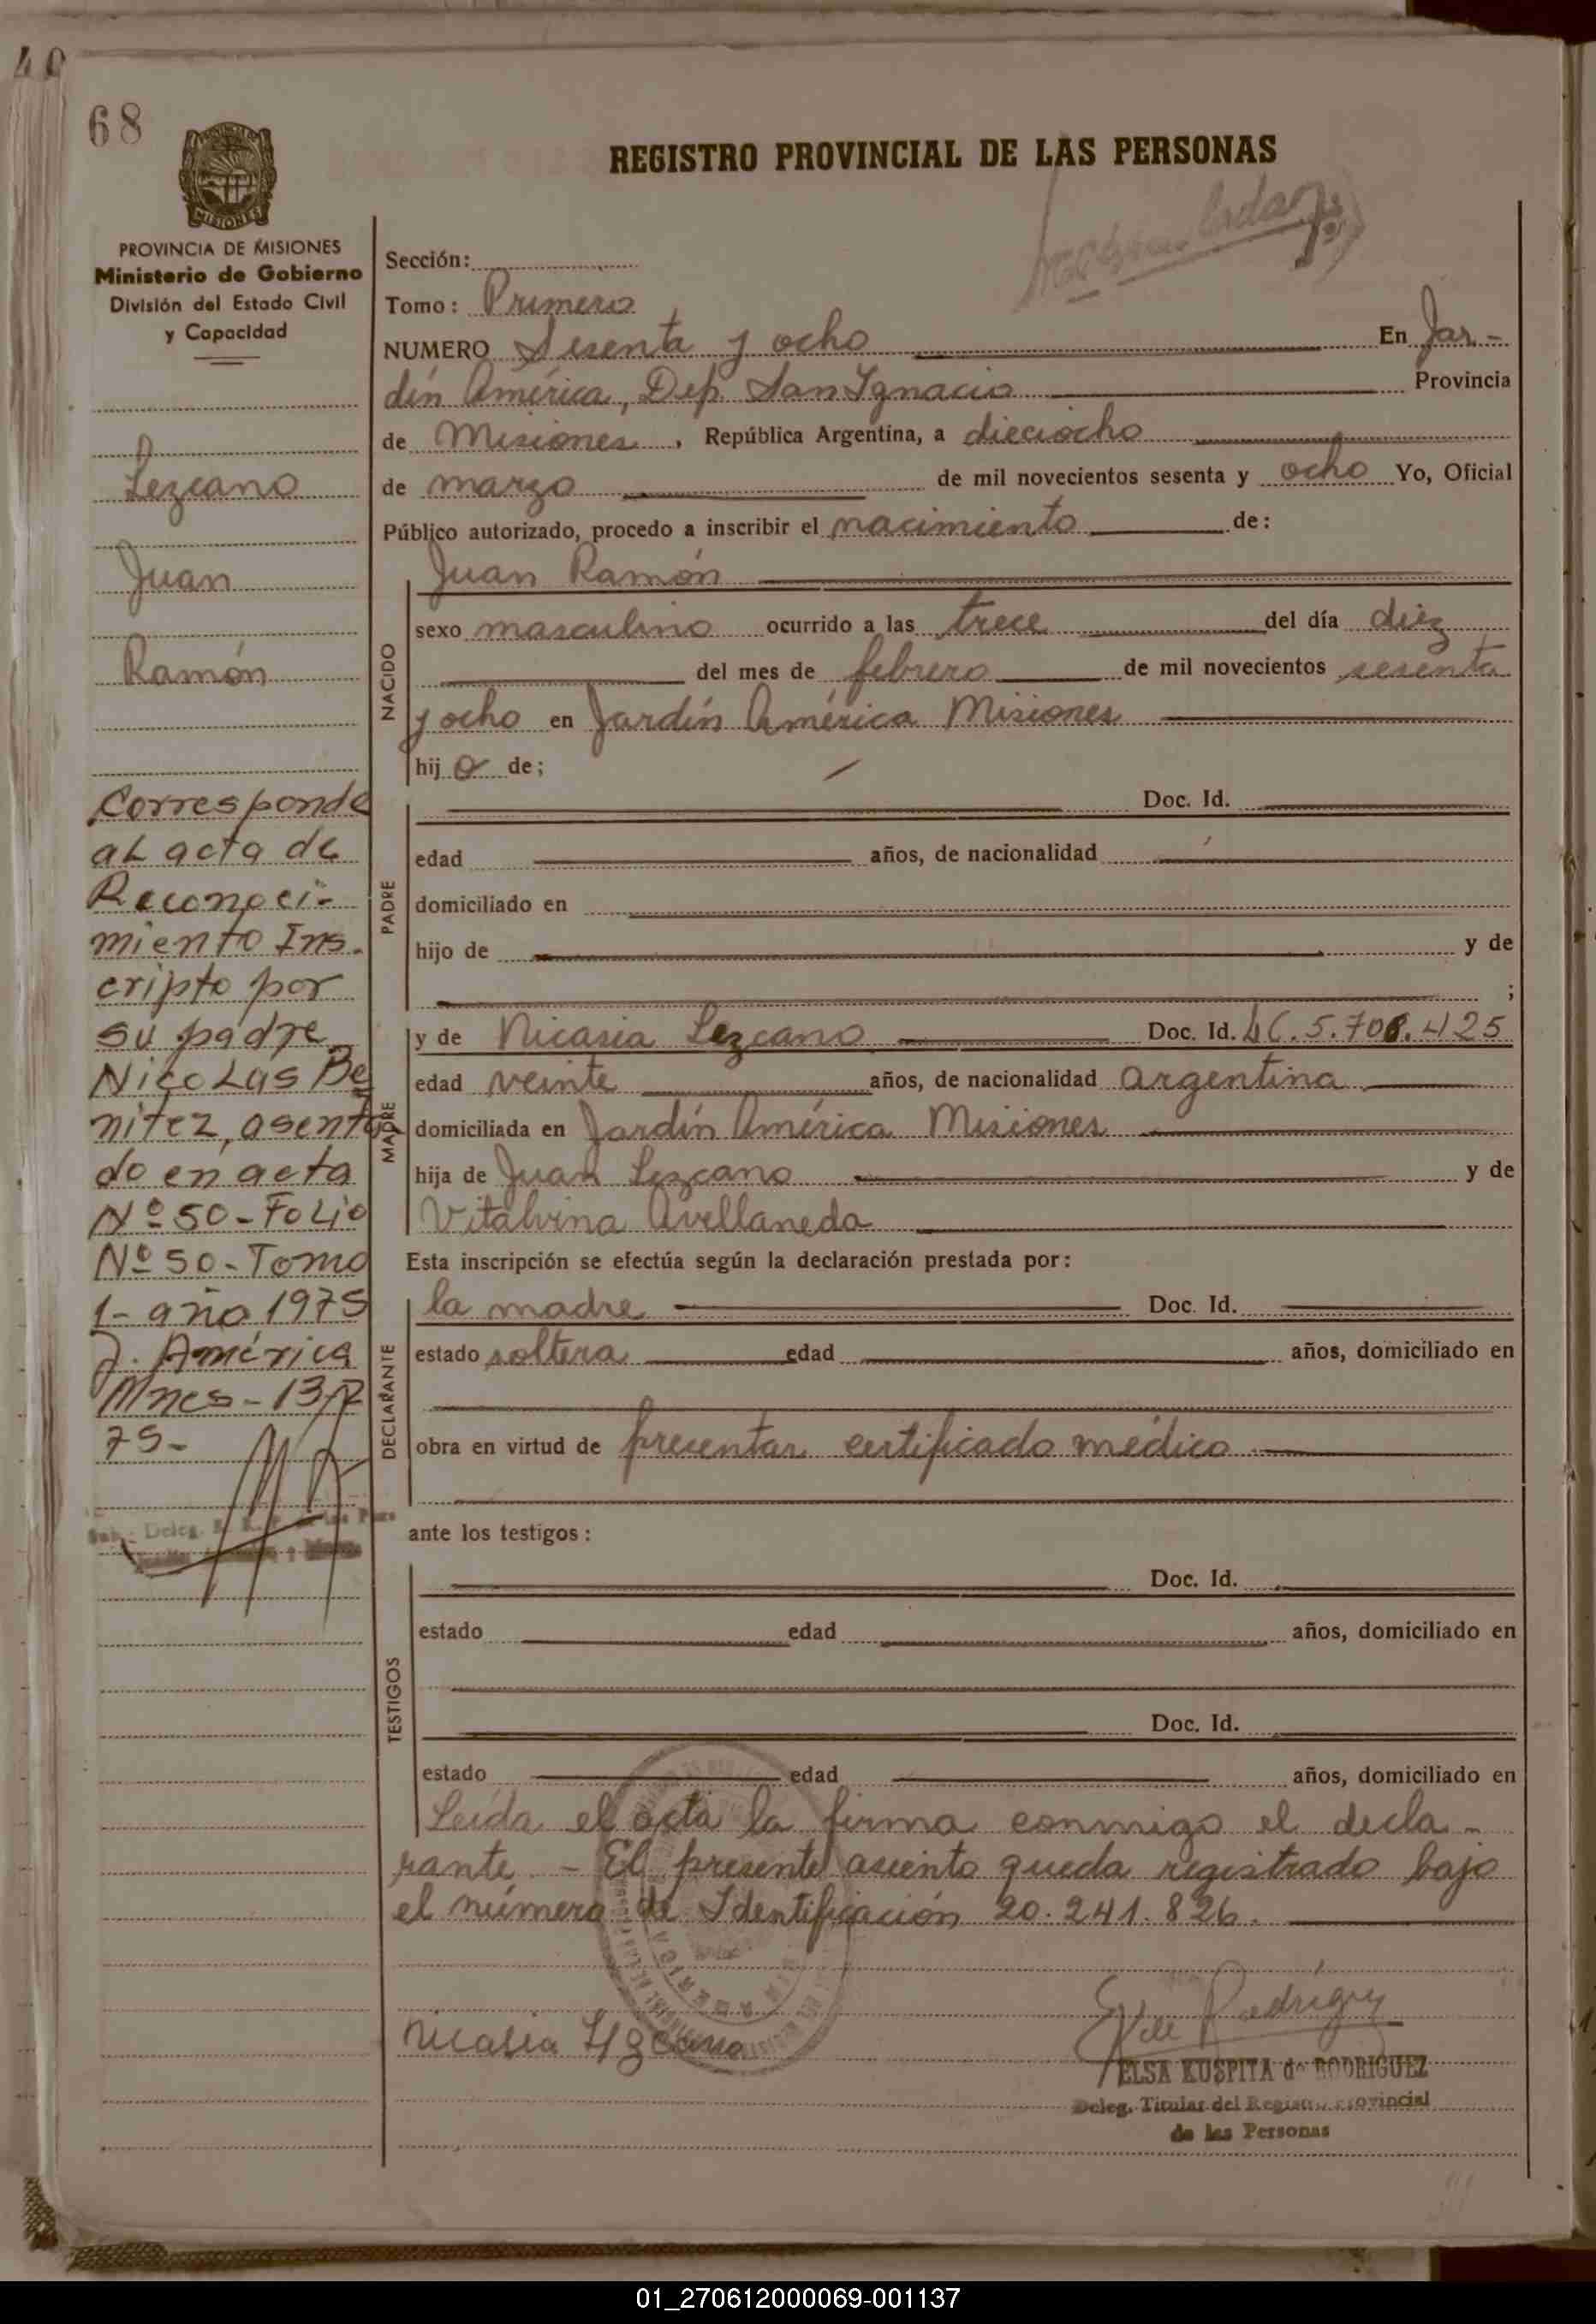 40
68
MISIONES
PROVINCIA DE MISIONES
Ministerio de Gobierno
División del Estado Civil
y Capacidad
Lezcano
Juan
Ramón
Corresponde
al acta de
Reconoci-
miento Ins-
cripto por
su padre
Nicolas Be
nitez, asenta
do en acta
Nº 50 - Folio
Nº 50 - Tomo
1 - año 1975
J. América
Mnes - 13/
75-
Sub. Deleg.
REGISTRO PROVINCIAL DE LAS PERSONAS
Sección:
Tomo: Primero
NUMERO Sesenta y ocho En Jar-
dín América, Dep. San Ignacio Provincia
de Misiones, República Argentina, a dieciocho
de marzo de mil novecientos sesenta y ocho Yo, Oficial
Público autorizado, procedo a inscribir el nacimiento de:
NACIDO
Juan Ramón
sexo masculino ocurrido a las trece del día diez
del mes de febrero de mil novecientos sesenta
y ocho en Jardín América Misiones
hijo de;
PADRE
Doc. Id.
edad años, de nacionalidad
domiciliado en
hijo de y de
;
MADRE
y de Nicasia Lezcano Doc. Id. LC. 5.708.425
edad veinte años, de nacionalidad argentina
domiciliada en Jardín América Misiones
hija de Juan Lezcano y de
Vitalvina Avellaneda
Esta inscripción se efectúa según la declaración prestada por:
DECLARANTE
la madre Doc. Id.
estado soltera edad años, domiciliado en
obra en virtud de presentar certificado médico
ante los testigos:
TESTIGOS
Doc. Id.
estado edad años, domiciliado en
Doc. Id.
estado edad años, domiciliado en
Leída el acta la firma conmigo el decla-
rante - El presente asiento queda registrado bajo
el número de Identificación 20.241.826.
Nicasia Lezcano
ELSA KUSPITA de RODRIGUEZ
Deleg. Titular del Registro Provincial
de las Personas
01_270612000069-001137